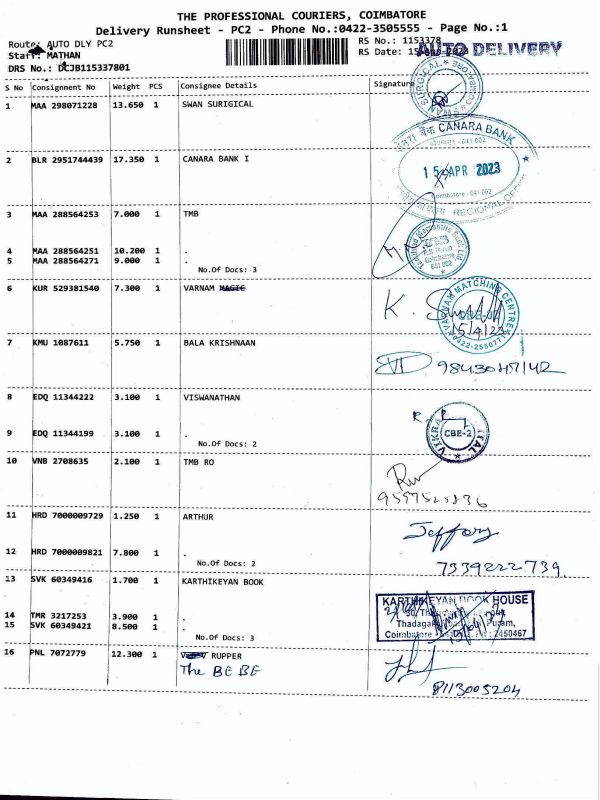 THE PROFESSIONAL COURIERS, COIMBATORE
Delivery Runsheet - PC2 - Phone No.:0422-3505555 - Page No.:1
Route: AUTO DLY PC2
RS No.: 1153378
Staff: MATHAN
RS Date: 15
AUTO DELIVERY
DRS No.: DCJB115337801
S No Consignment No Weight PCS Consignee Details Signature
1 MAA 298071228 13.650 1 SWAN SURIGICAL
SWAN SURGICAL COIMBATORE
CANARA BANK
2 BLR 2951744439 17.350 1 CANARA BANK I
15 APR 2023
Coimbatore - 641 002
REGIONAL
3 MAA 288564253 7.000 1 TMB
4 MAA 288564251 10.200 1 .
5 MAA 288564271 9.000 1 .
No.Of Docs: 3
6 KUR 529381540 7.300 1 VARNAM MAGIC
VARNAM MATCHING CENTRE
15/4/23
0422-2550771
7 KMU 1087611 5.750 1 BALA KRISHNAAN
9843047142
8 EDQ 11344222 3.100 1 VISWANATHAN
CBE-2
9 EDQ 11344199 3.100 1 .
No.Of Docs: 2
10 VNB 2708635 2.100 1 TMB RO
9597525836
11 HRD 7000009729 1.250 1 ARTHUR
Jeffory
12 HRD 7000009821 7.800 1 .
No.Of Docs: 2
7339222739
13 SVK 60349416 1.700 1 KARTHIKEYAN BOOK
KARTHIKEYAN BOOK HOUSE
14 TMR 3217253 3.900 1 .
15 SVK 60349421 8.500 1 .
Coimbatore
2450467
No.Of Docs: 3
16 PNL 7072779 12.300 1 RUPPER
The BE BE
8113005204